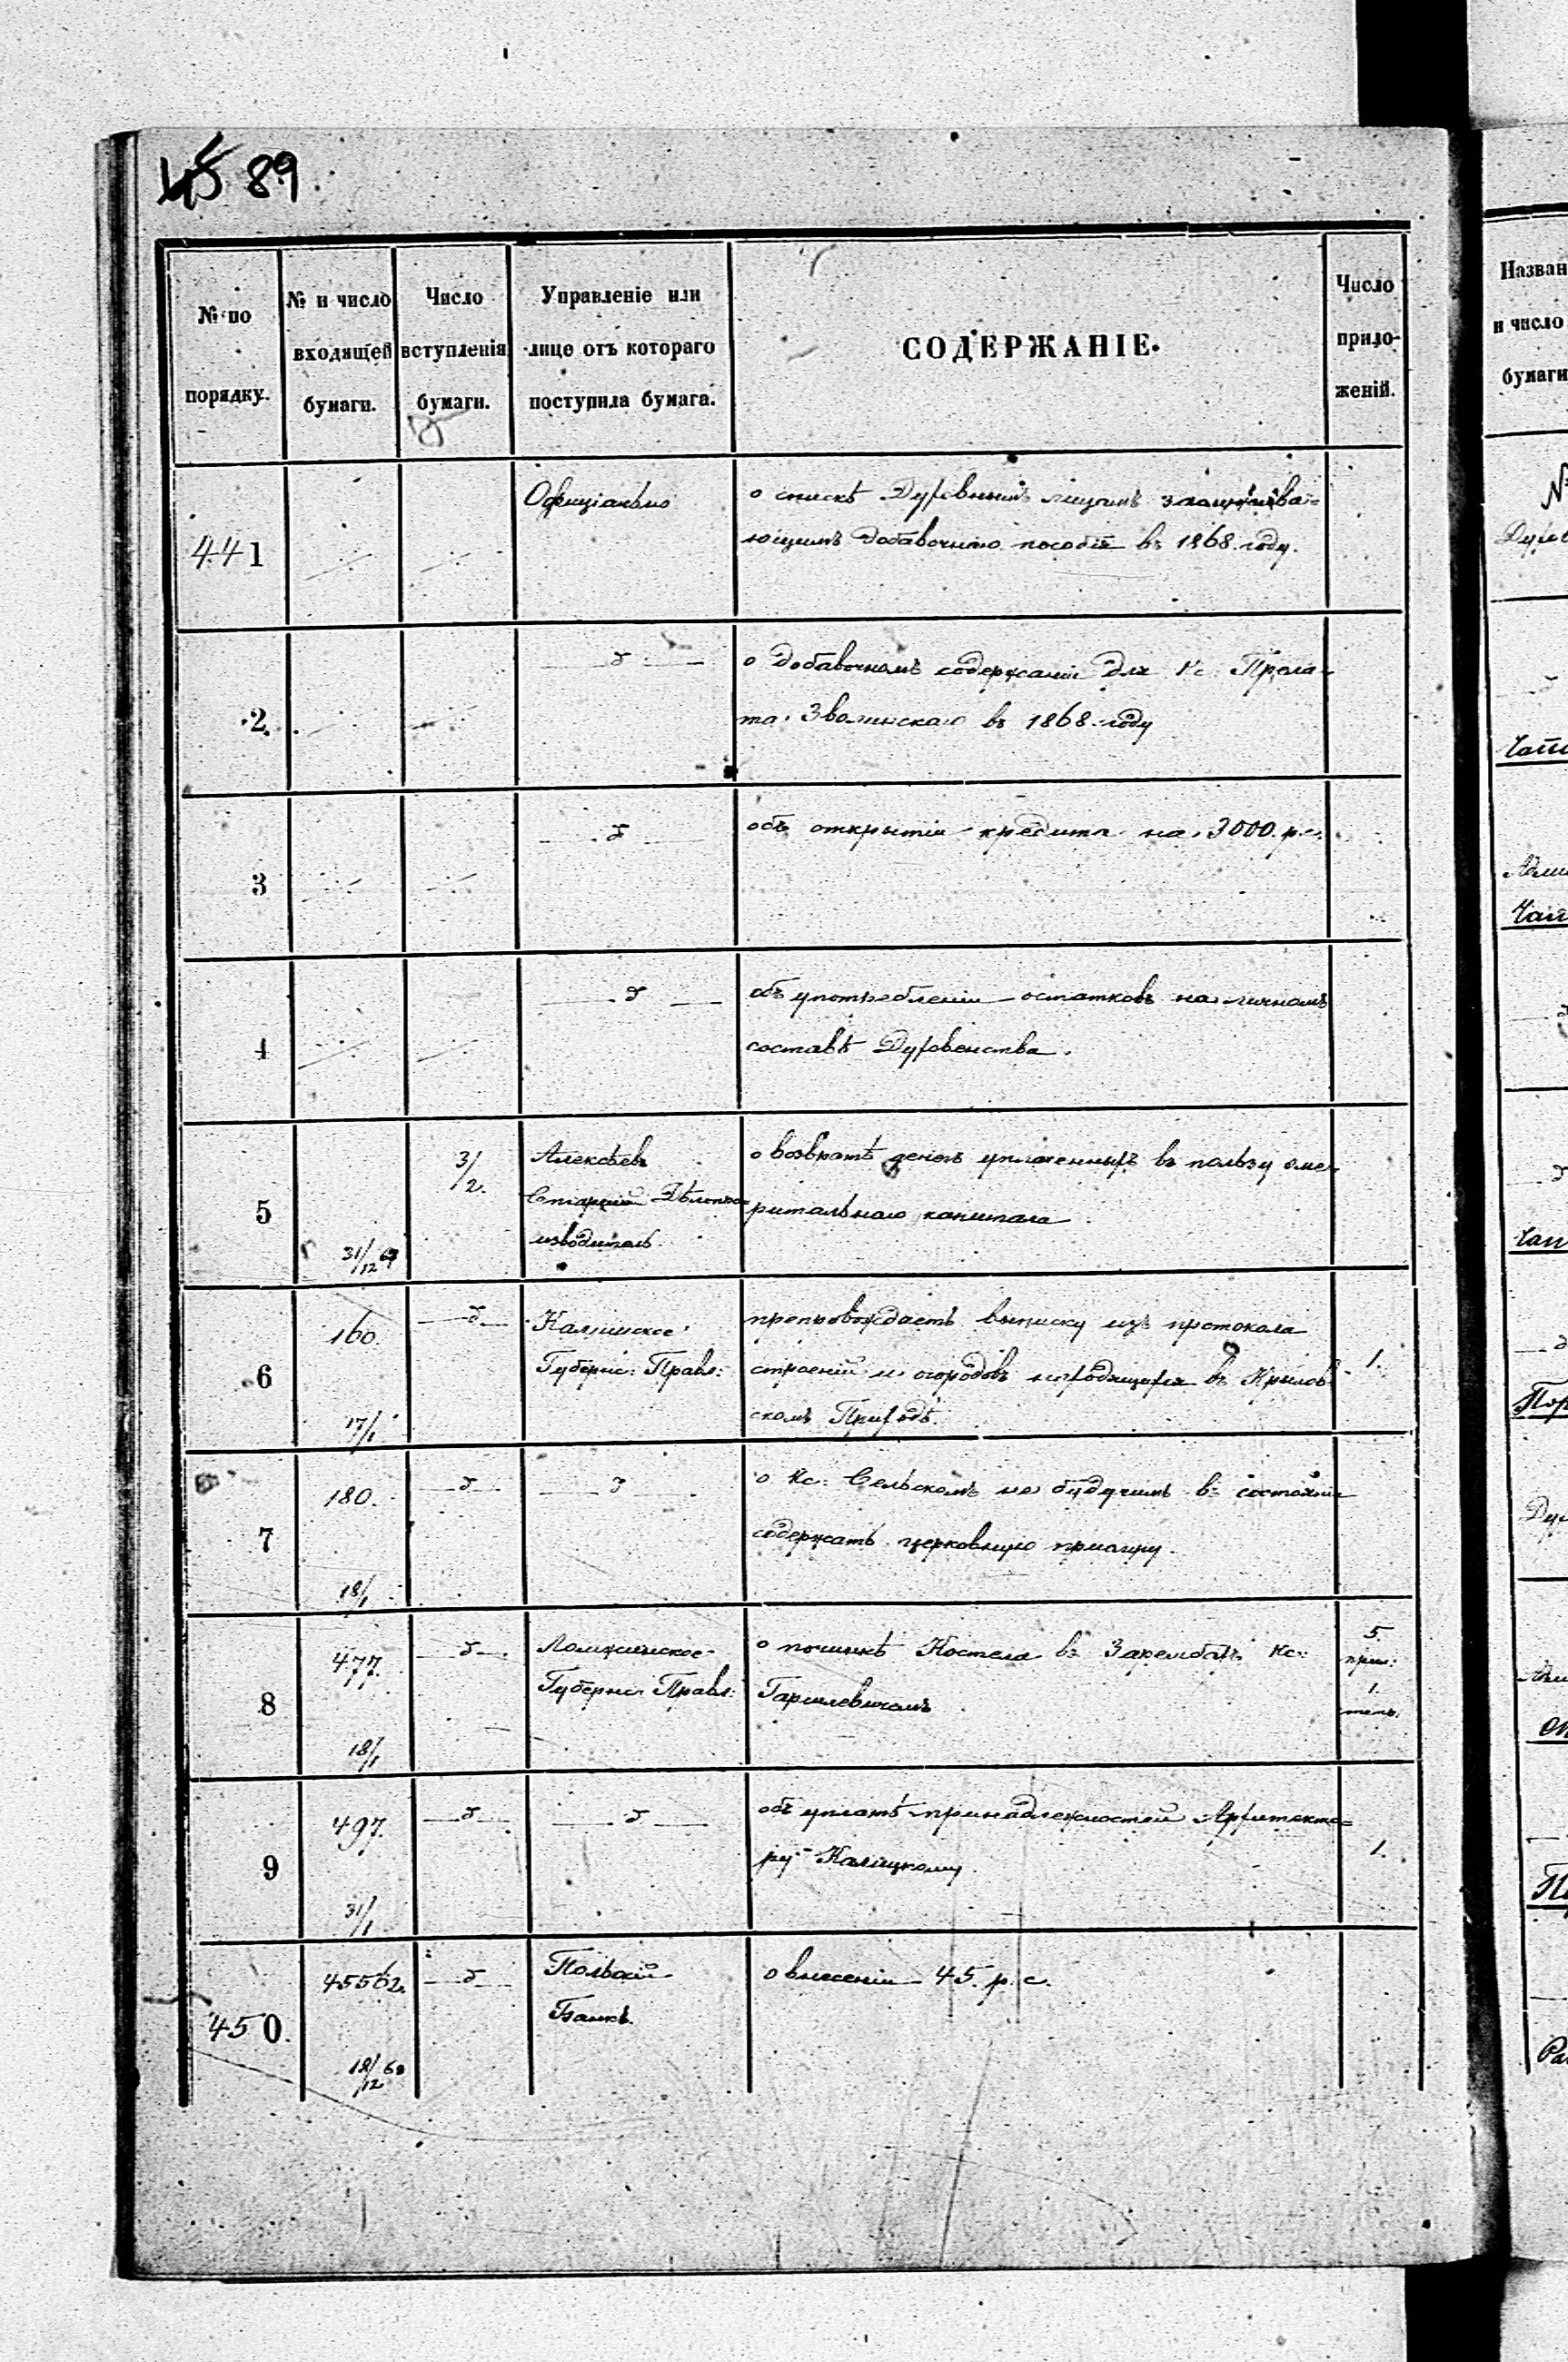 89
№ по порядку.
№ и число входящей бумаги.
Число вступленія бумаги.
Управленіе или лице отъ котораго поступила бумага.
СОДЕРЖАНІЕ.
Число приложеній.
441
Офиціально
о спискѣ Духовнымъ лицамъ
ющимъ добавочное пособіе въ 1868. году.
2.
о добавочномъ содержаніи для Кс. Прела-
та Зволинскаго въ 1868. году
3
объ открытіи кредита на 3000. р.с.
4
объ употребленіи остатковъ на личномъ
составѣ Духовенства.
5
31/12 67
3/2.
Алексѣевъ
Старшій Дѣлопро=
изводитель.
о возвратѣ денегъ уплаченныхъ въ пользу эме-
ритальнаго капитала.
6
160.
17/1
Калишское
Губернс: Правл:
препровождаетъ выписку изъ протокола
строеній и огородовъ находящихся въ Крылов-
скомъ Приходѣ.
1.
7
180.
18/1
о Кс: Сельскомъ не будучимъ въ состояніи
содержать церковную прислугу.
8
477.
18/1
Ломжинское
Губернс. Правл:
о починкѣ Костела въ Зарембахъ Кс:
5.
прил:
1.
9
497.
31/1
объ уплатѣ принадлежностей Архитекто=
ру Калицкому
1.
450.
45562.
18/12
Польскій
Банкъ.
о внесеніи 45. р. с.
Назван
и число
бумаги
№
Духов